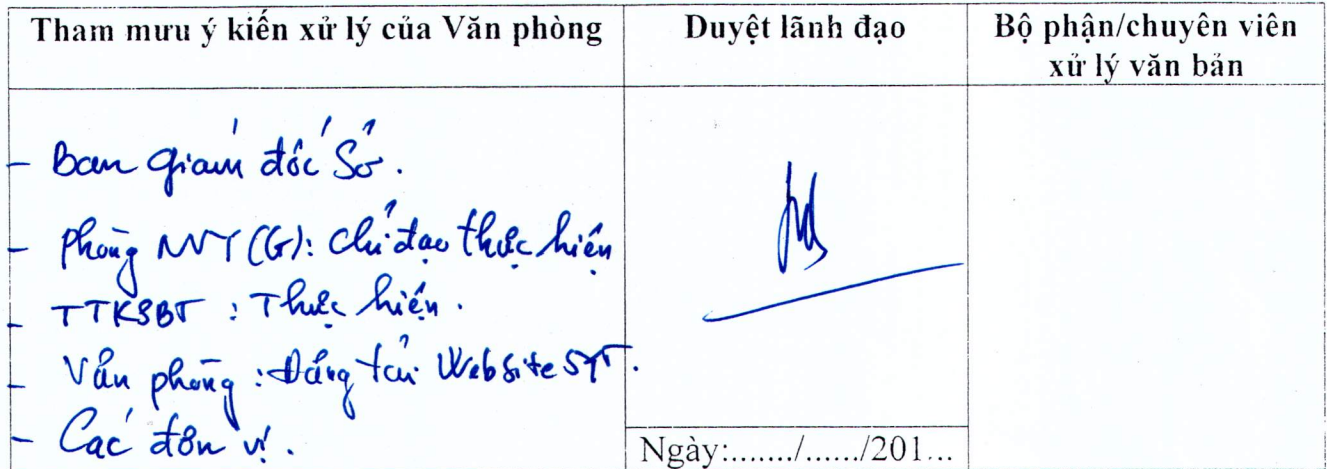 Tham mưu ý kiến xử lý của Văn phòng
Duyệt lãnh đạo
Bộ phận/chuyên viên
xử lý văn bản
- Ban Giám đốc Sở.
- Phòng NVY(G): Chỉ đạo thực hiện
- TTKSBT : Thực hiện.
- Văn phòng : Đăng tải Website SYT.
- Các đơn vị.
Ngày:......./....../201...